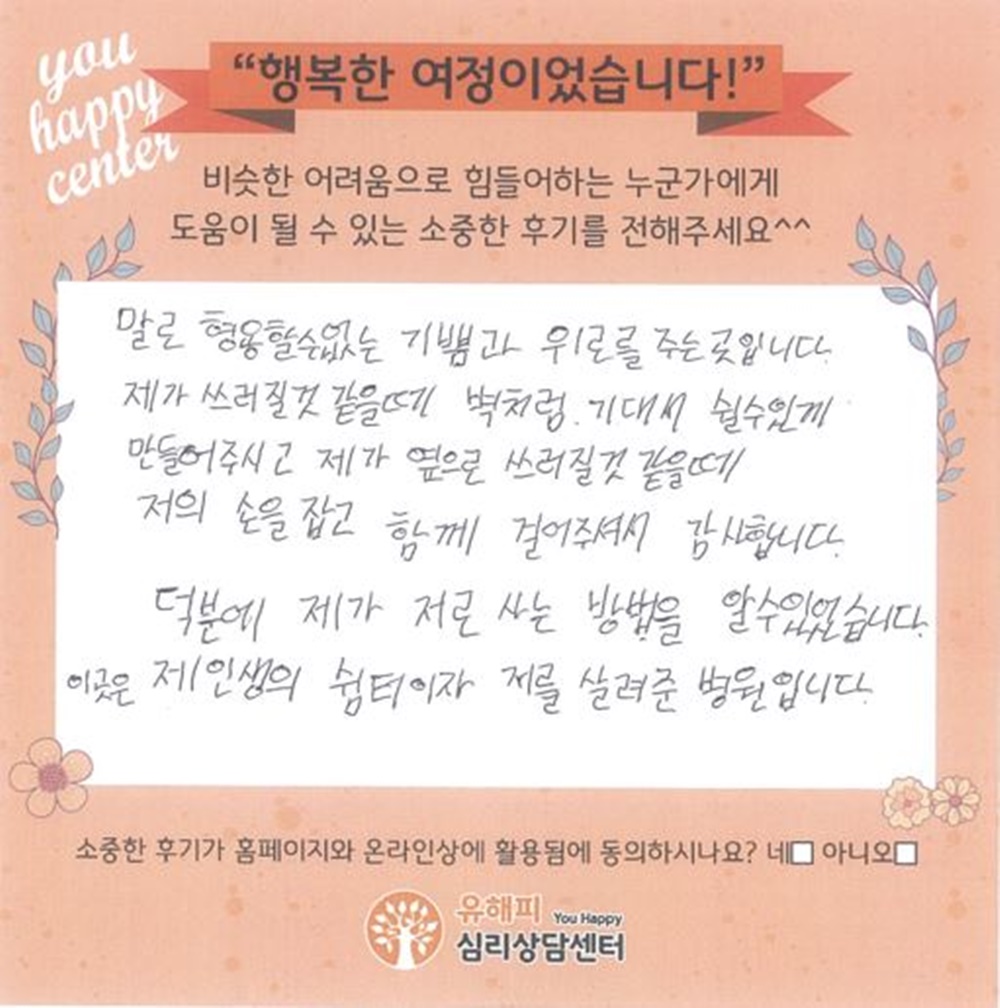 you
happy
center
“행복한 여정이었습니다!”
비슷한 어려움으로 힘들어하는 누군가에게
도움이 될 수 있는 소중한 후기를 전해주세요^^
말로 형용할수없는 기쁨과 위로를 주는곳입니다.
제가 쓰러질것 같을때 벽처럼. 기대서 쉴수있게
만들어주시고 제가 옆으로 쓰러질것 같을때
저의 손을 잡고 함께 걸어주셔서 감사합니다.
덕분에 제가 저로 사는 방법을 알수있었습니다.
이곳은 제인생의 쉼터이자 저를 살려준 병원입니다.
소중한 후기가 홈페이지와 온라인상에 활용됨에 동의하시나요? 네□ 아니오□
유해피 You Happy
심리상담센터